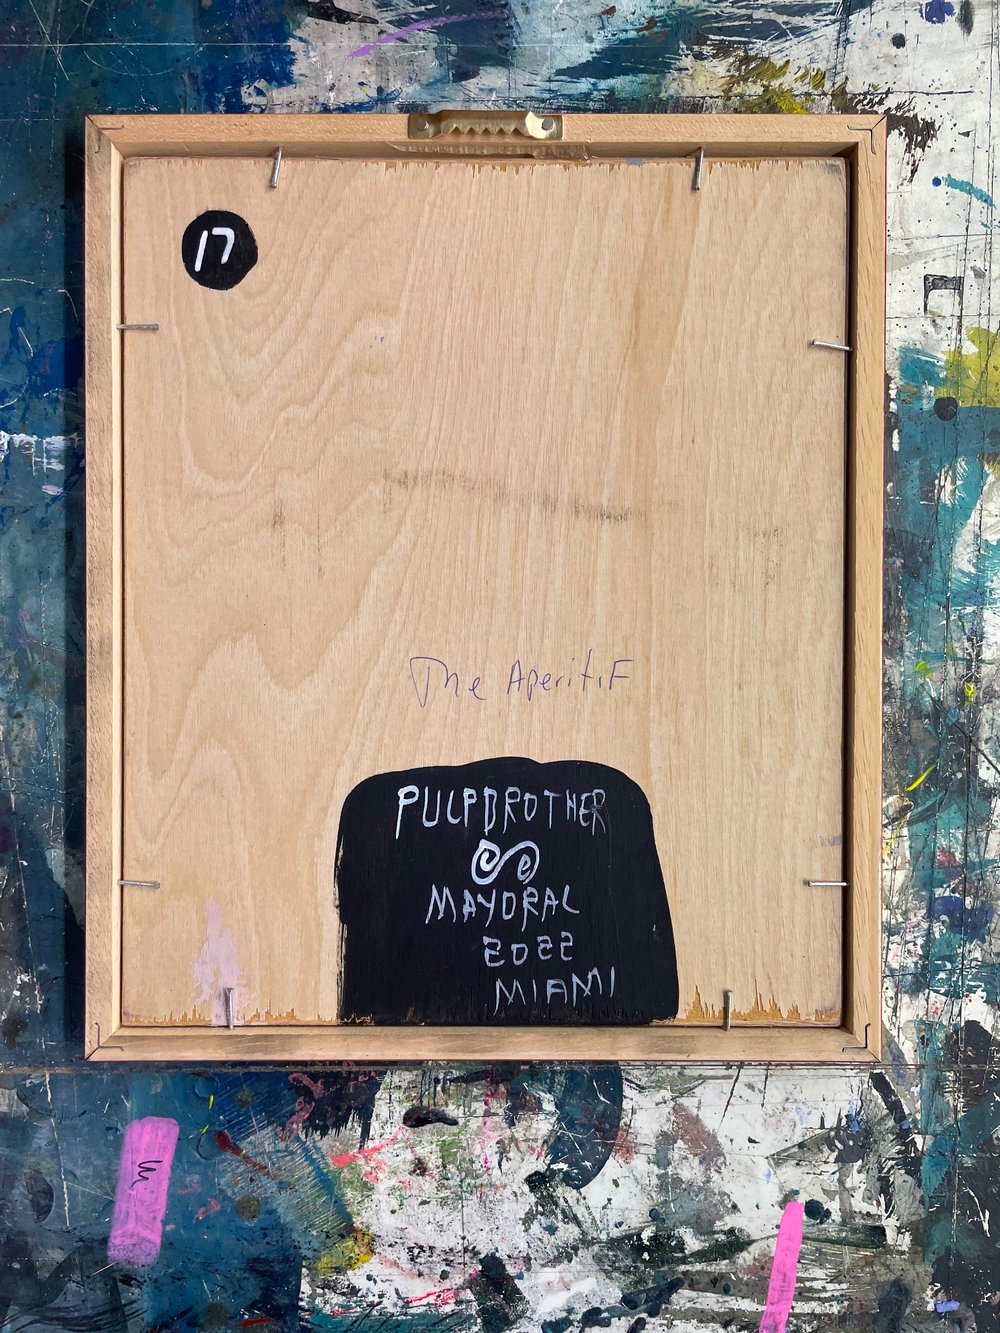 17
The AperitiF
PULPBROTHER
MAYORAL
2022
MIAMI